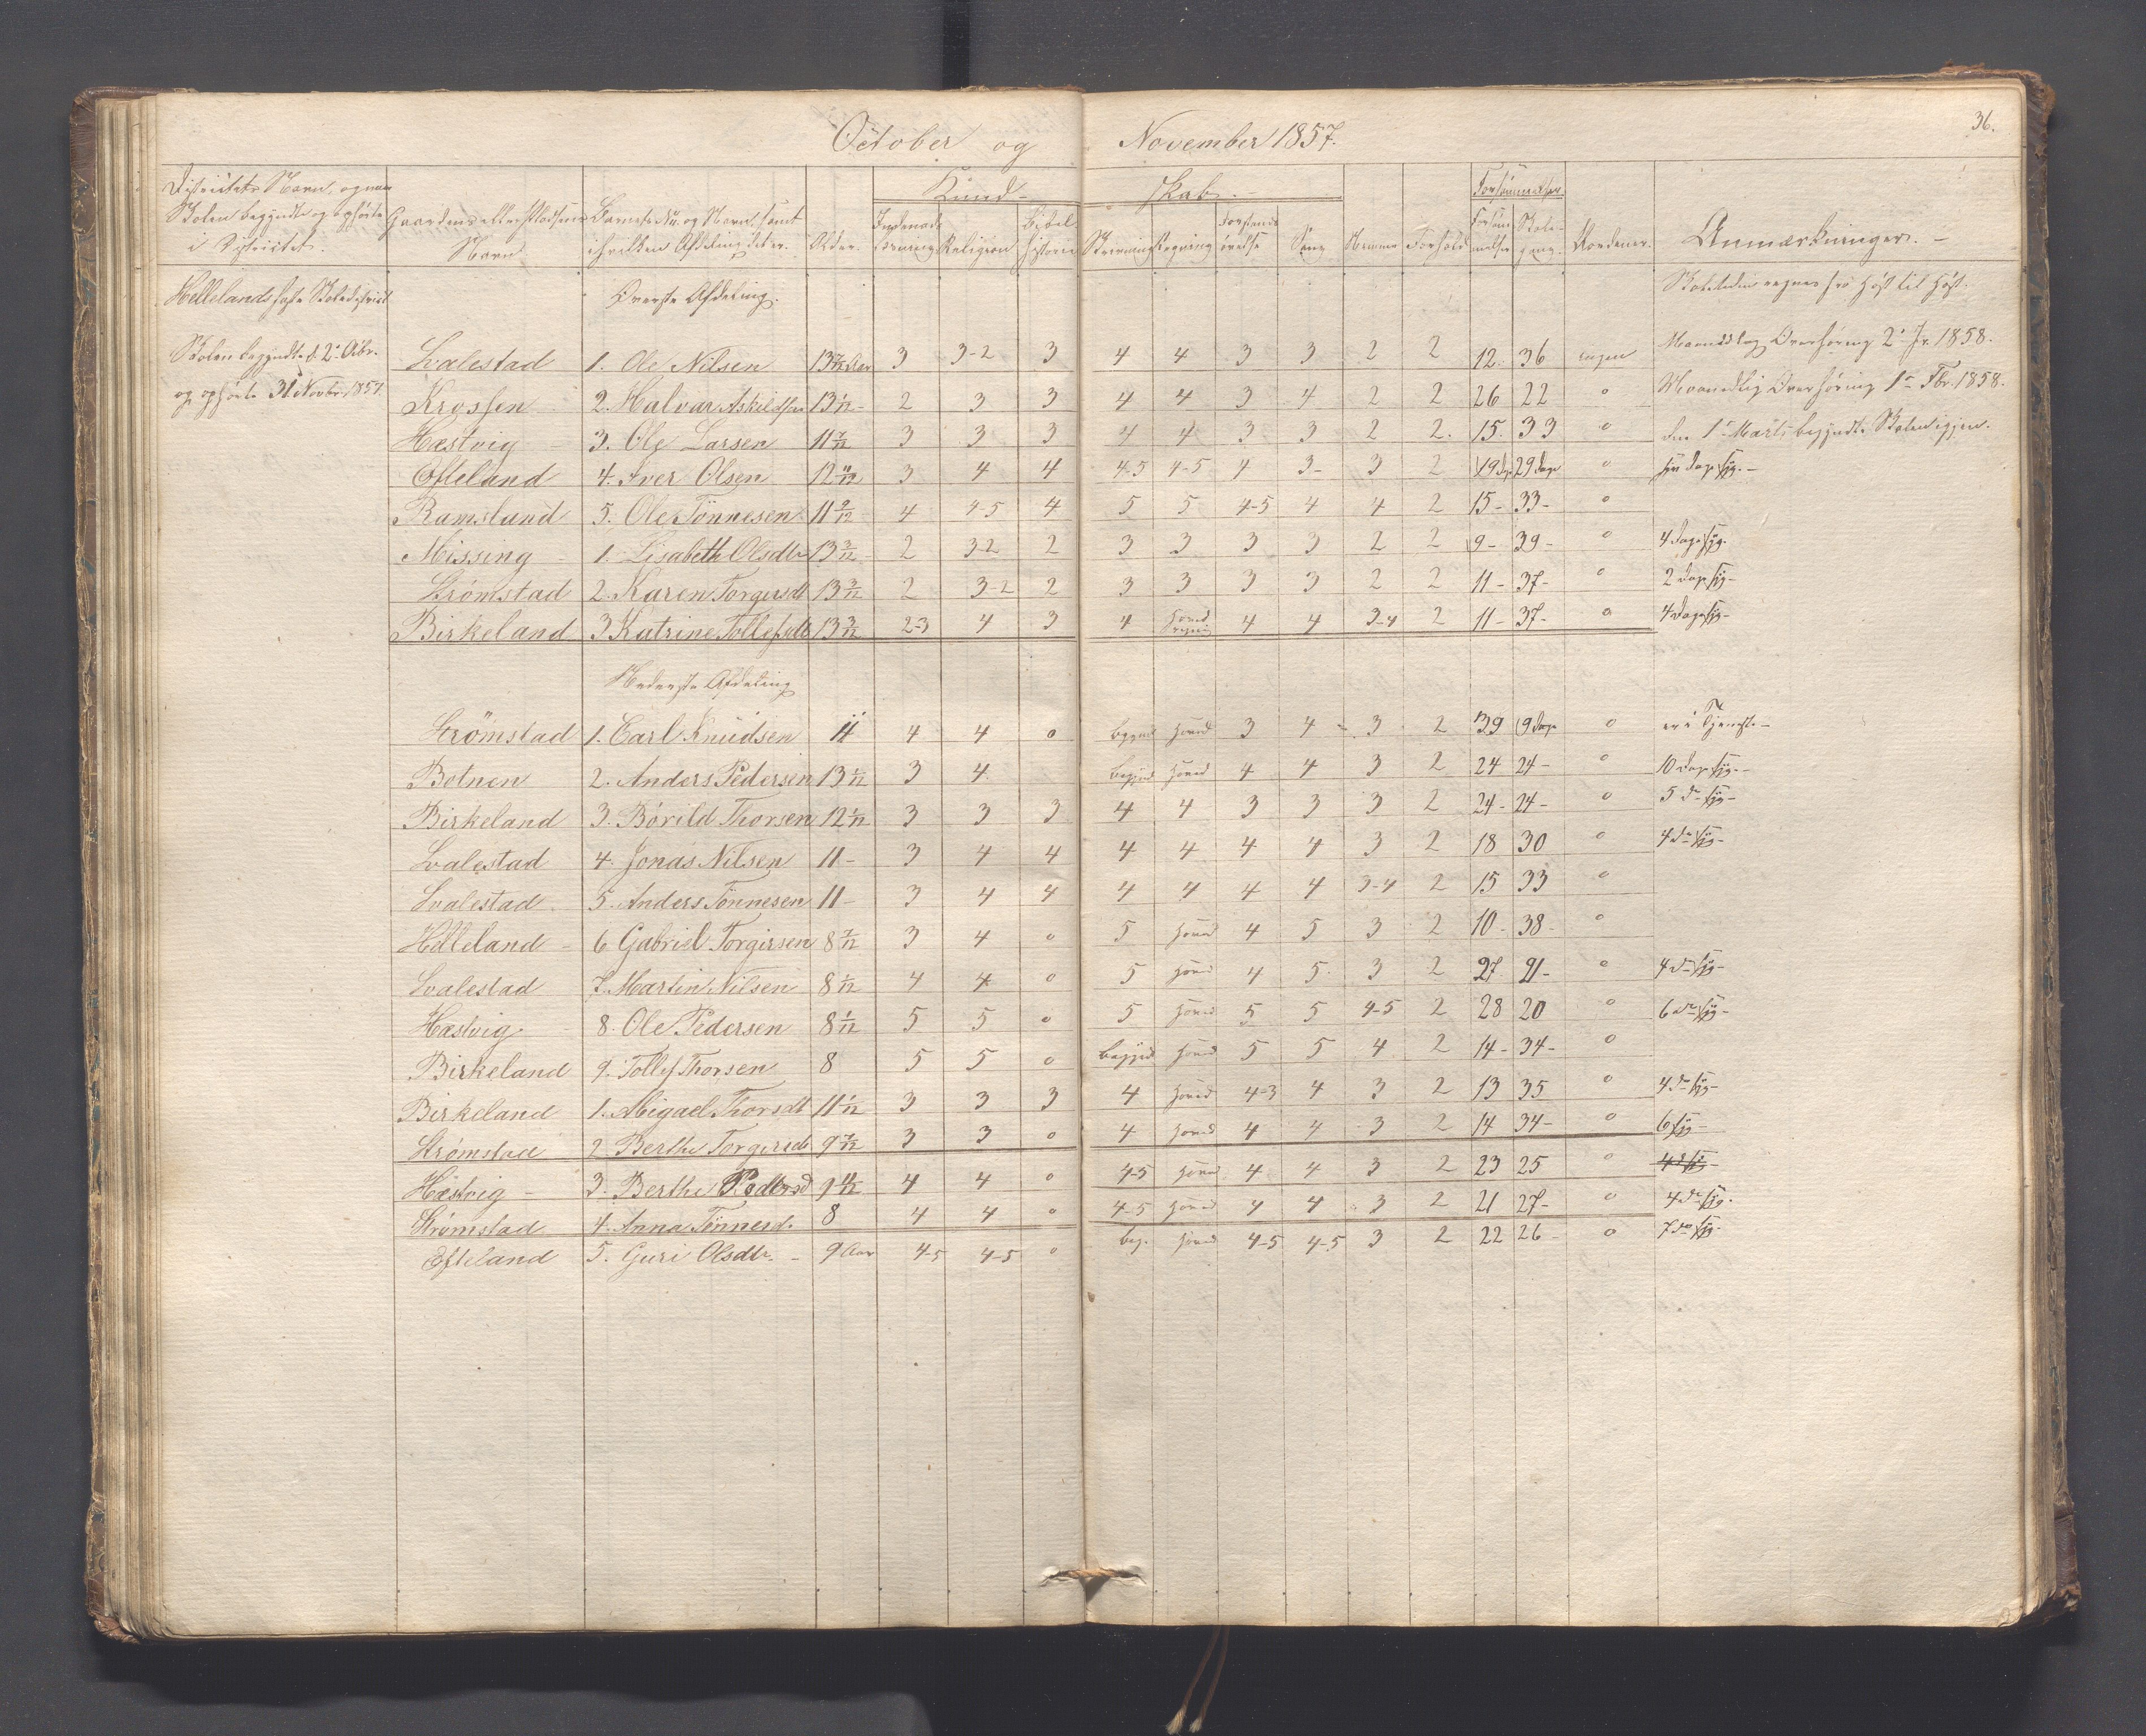 36.
October og November 1857.
Districtets Navn, og naar Skolen begyndte og ophørte i Districtet.
Gaardens eller Pladsens Navn
Barnets Nu. og Navn, samt i hvilken Afdeling det er.
Alder.
Kund- skab.
Indenads Læsning
Religion
Bibel historie
Skrivning
Regning
Forstands øvelse
Sang
Nemme
Forhold
Forsømmelser.
Forsøm melse
Skole- gang.
Anmærkninger.
Hellelands faste Skoledistrict
Øverste Afdeling.
Skoletiden regnes fra Høst til Høst.
Skolen begyndte d. 2. Octbr.
og ophørte 31 Novbr. 1857.
Svalestad 1. Ole Nilsen 13 7/12 Aar 3 3-2 3 4 4 3 3 2 2 12. 36 ingen Maanedlig Overhøring 2. Jr. 1858.
Krossen 2. Halvar Askildsen 13 1/12 2 3 3 4 4 3 4 2 2 26 22 o Maanedlig Overhøring 1e Fbr. 1858.
Hæstvig 3. Ole Larsen 11 7/12 3 3 3 4 4 3 3 2 2. 15. 33 o den 1e Marts begyndte Skolen igjen.
Efteland 4. Iver Olsen 12 10/12 3 4 4 4-5 4-5 4 3 3 2 19 dg. 29 dage o dage syg.
Ramsland 5. Ole Tönnesen 11 9/12 4 4-5 4 5 5 4-5 4 4 2 15 33 o
Missing 1. Lisabeth Olsdtr 13 3/12 2 3-2 2 3 3 3 3 2 2 9 39 o 4 dage syg.
Strömstad 2. Karen Torgersdt 13 3/12 2 3-2 2 3 3 3 3 2 2 11 37 o 2 dage syg
Birkeland 3 Katrine Tollefsdtr 13 3/12 2-3 4 3 4 hoved regning 4 4 3-4 2 11 37 o 4 dage syg
Nederste Afdeling
Strömstad 1. Carl Knudsen 11 4 4 o begynd hoved 3 4 3 2 39 9 dage o er i Tjeneste
Botnen 2. Anders Pedersen 13 1/12 3 4 begynd hoved 4 4 3 2 24 24 o 10 dage syg.
Birkeland 3. Börild Thorsen 12 1/12 3 3 3 4 4 3 3 3 2 24 24 o 5 do syg
Svalestad 4. Jonas Nilsen 11 3 4 4 4 4 4 4 3 2 18 30 o 4 do syg
Svalestad 5. Anders Tönnesen 11 3 4 4 4 4 4 4 3-4 2 15 33 o
Helleland 6. Gabriel Torgersen 8 7/12 3 4 o 5 hoved 4 5 3 2 10 38 o
Svalestad 7. Martin Nilsen 8 1/12 4 4 o 5 hoved 4 5 3 2 27. 21 o 4 do syg
Hæstvig 8. Ole Pedersen 8 1/12 5 5 o 5 hoved 5 5 4-5 2 28 20 o 6 do syg
Birkeland 9. Tollef Thorsen 8 5 5 o begynd hoved 5 5 4 2 14 34 o
Birkeland 1. Abigael Thorsdt 11 1/12 3 3 3 4 hoved 4-3 4 3 2 13 35 o 4 do syg
Strömstad 2 Berthe Torgersdt 9 7/12 3 3 o 4 hoved 4 4 3 2 14 34 o 6 syg
Hæstvig 3. Berthe Pedersd 9 11/12 4 4 o 4-5 hoved 4 4 3 2 23 25 o 4 d syg
Strömstad 4. Anna Tönnesd. 8 4 4 o 4-5 hoved 4 4 3 2 21 27 o 4 do syg.
Efteland 5. Guri Olsdtr. 9 Aar 4-5 4-5 o beg. hoved 4-5 4-5 3 2 22 26 o 7 do syg.